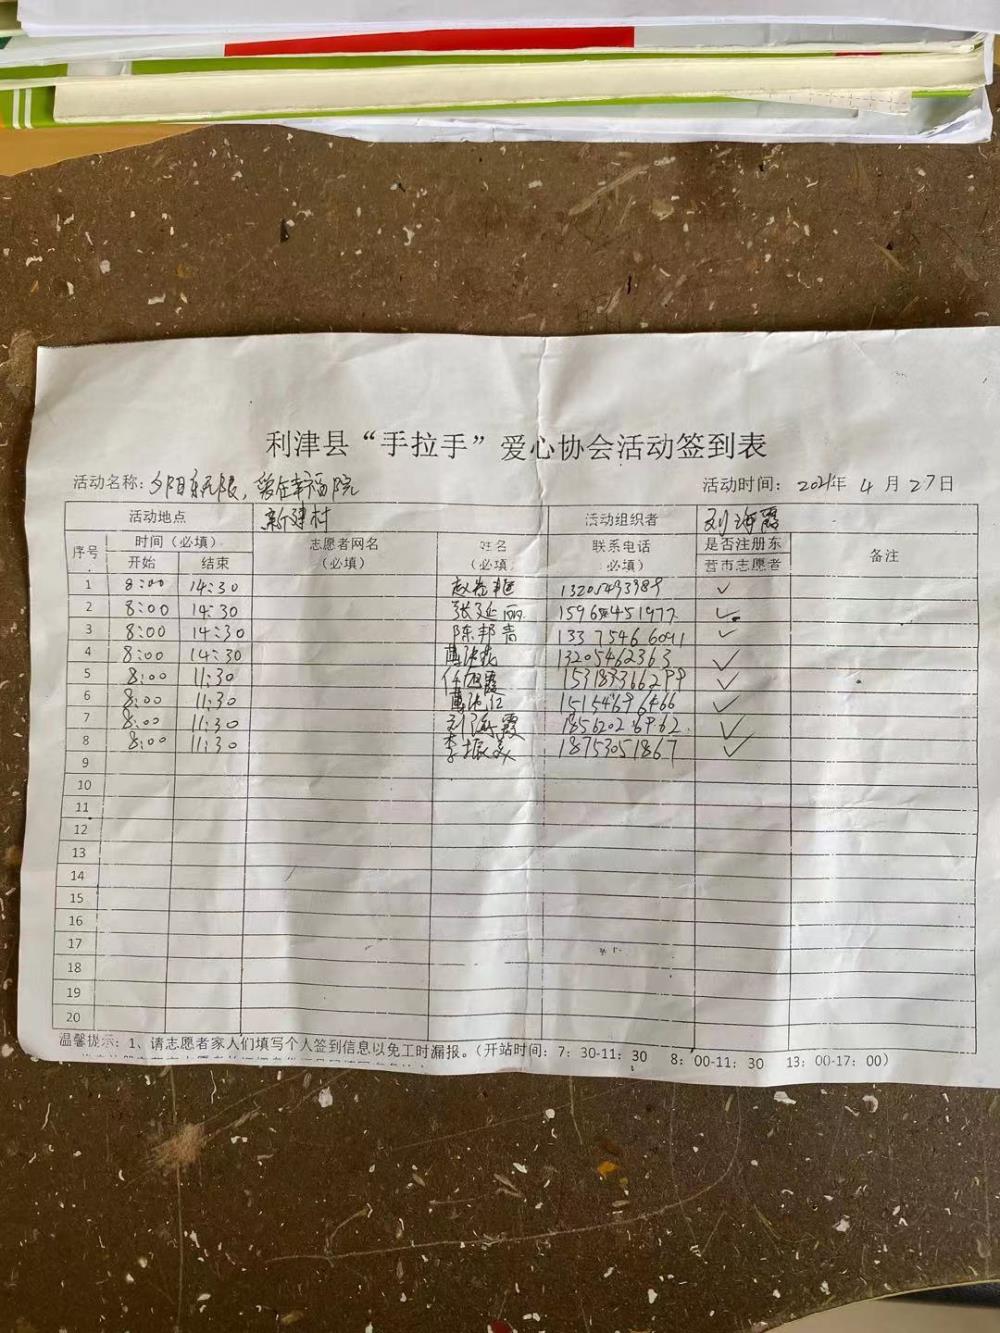 利津县“手拉手”爱心协会活动签到表
活动名称：夕阳无限，爱在幸福院 活动时间：2021年 4 月 27日
活动地点 新建村 活动组织者 刘海霞
序号 时间（必填） 志愿者网名（必填） 姓名（必填） 联系电话（必填） 是否注册东营市志愿者 备注
开始 结束
1 8:00 14:30 13205493989 ✓
2 8:00 14:30 张延丽 ✓
3 8:00 14:30 陈邦青 13375466091 ✓
4 8:00 14:30 13205462363 ✓
5 8:00 11:30 任旭霞 ✓
6 8:00 11:30 15154696466 ✓
7 8:00 11:30 刘海霞 ✓
8 8:00 11:30 李振美 18753051867 ✓
9
10
11
12
13
14
15
16
17
18
19
20
温馨提示：1、请志愿者家人们填写个人签到信息以免工时漏报。（开站时间：7：30-11：30 8：00-11：30 13：00-17：00）